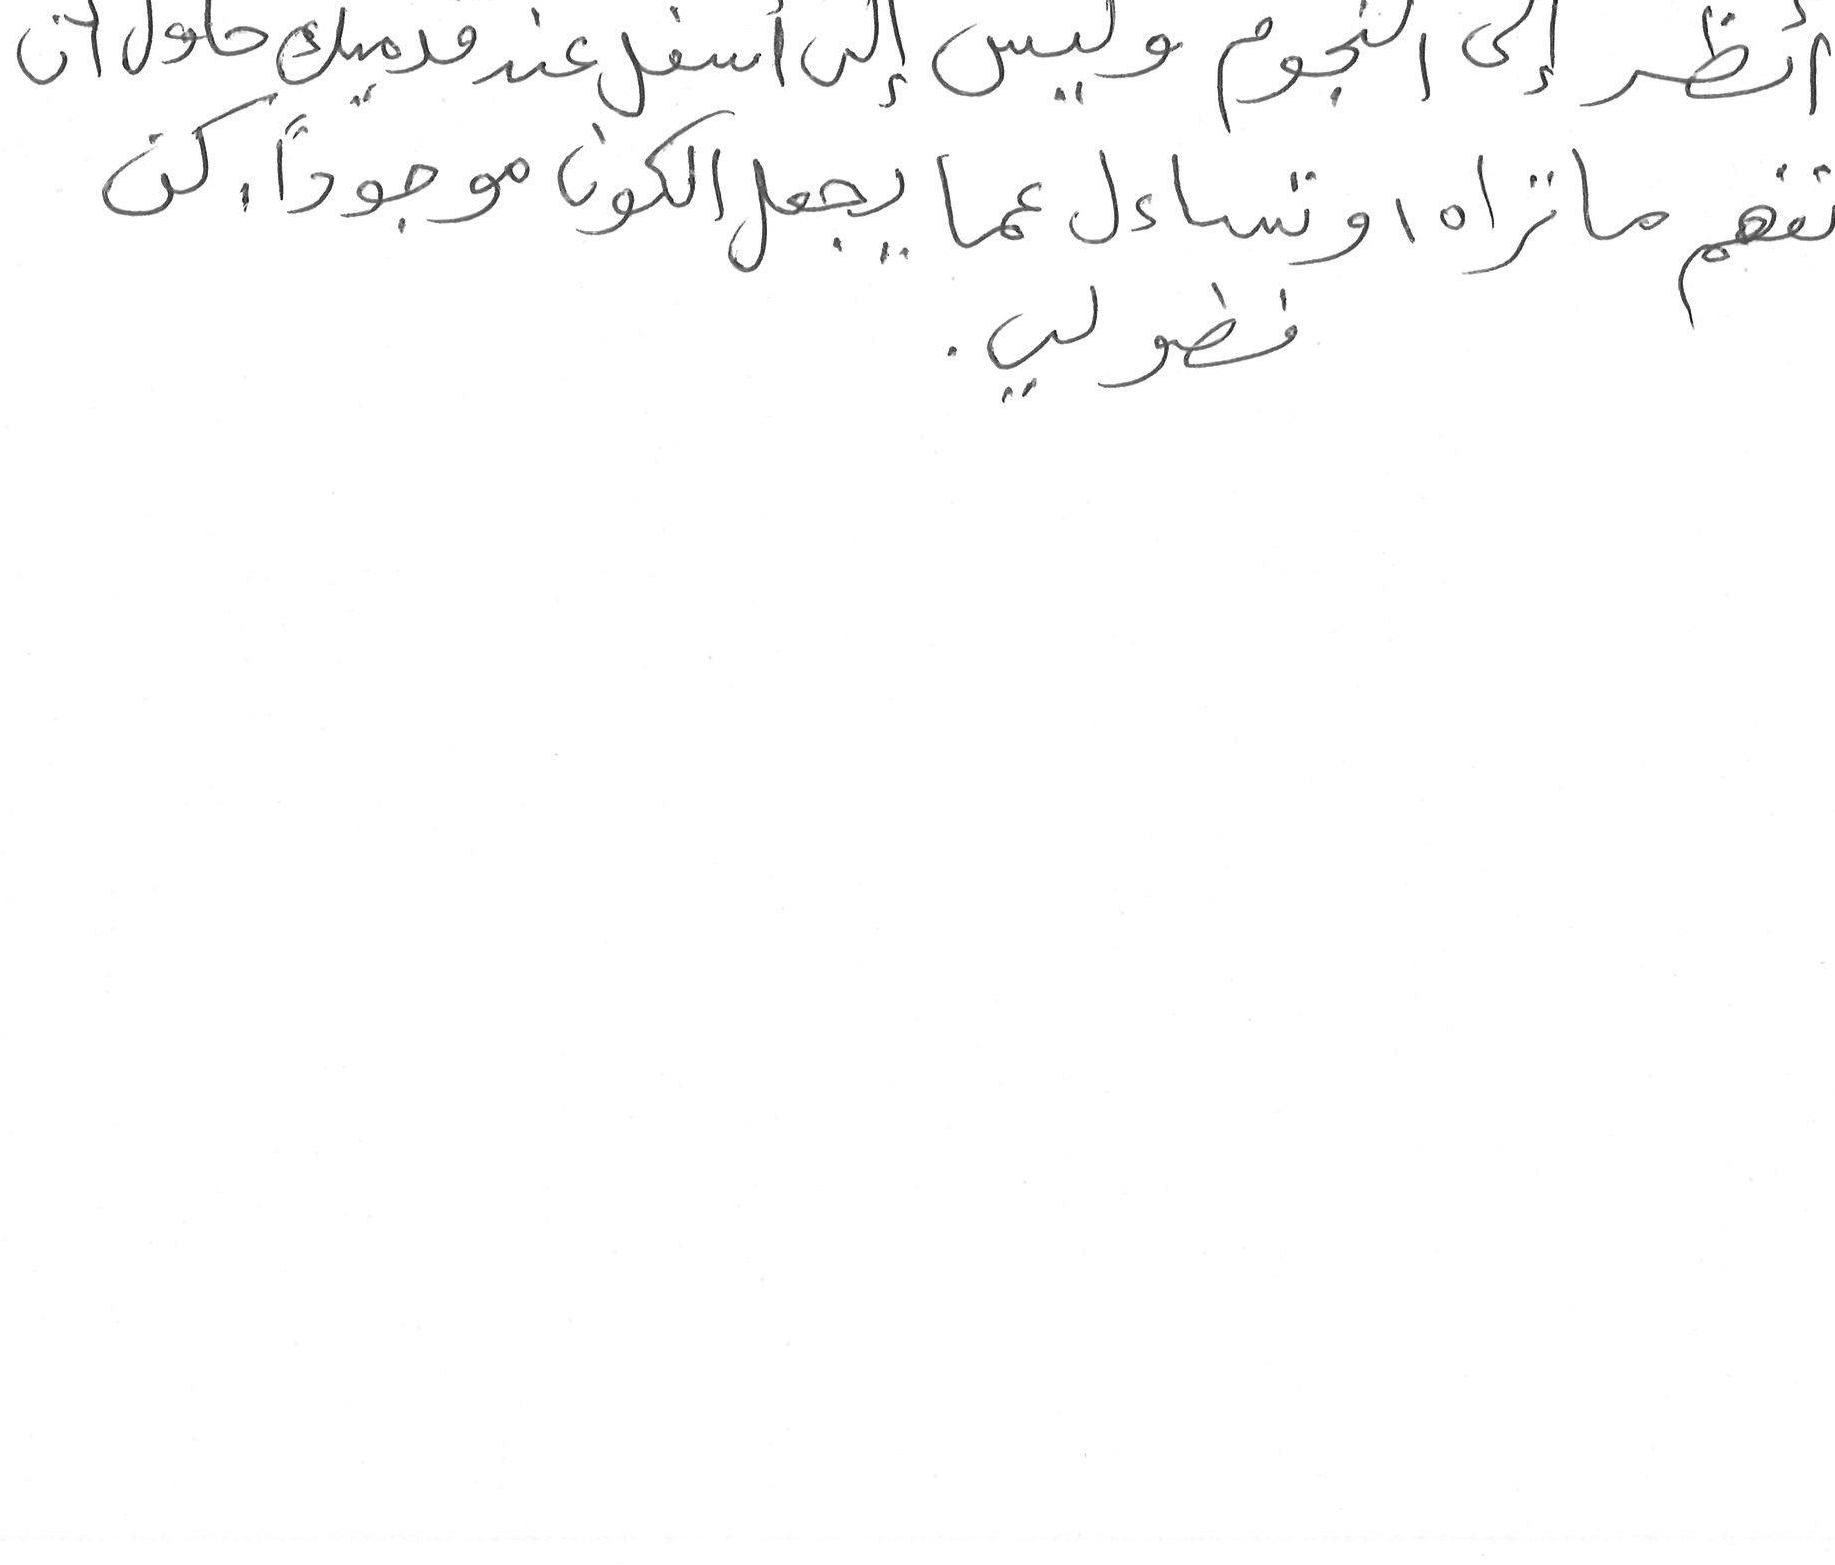 أنظر إلى النجوم وليس إلى أسفل عند قدميك حاول أن
تفهم ما تراه، وتساءل عما يجعل الكون موجوداً، كن
فضولي.